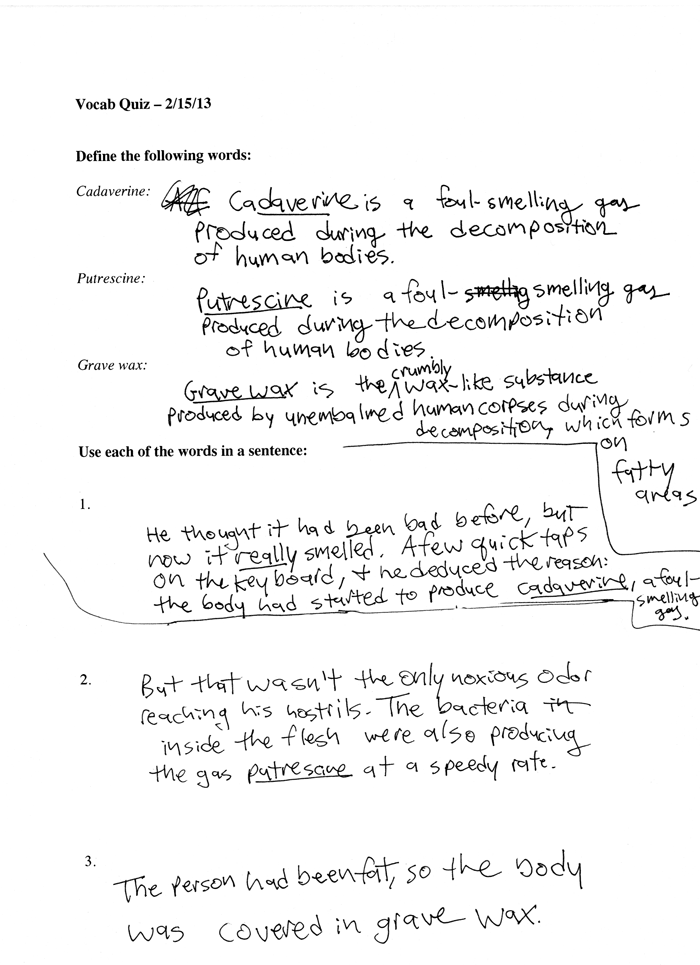 Vocab Quiz – 2/15/13
Define the following words:
Cadaverine:
Cadaverine is a foul-smelling gas
produced during the decomposition
of human bodies.
Putrescine:
Putrescine is a foul-smelling gas
produced during the decomposition
of human bodies.
Grave wax:
Grave wax is the crumbly wax-like substance
produced by unembalmed human corpses during
decomposition, which forms
on
fatty
areas
Use each of the words in a sentence:
1.
He thought it had been bad before, but
now it really smelled. A few quick taps
on the keyboard, + he deduced the reason:
the body had started to produce cadaverine, a foul-
smelling
gas.
2.
But that wasn't the only noxious odor
reaching his nostrils. The bacteria in
inside the flesh were also producing
the gas putrescine at a speedy rate.
3.
The person had been fat, so the body
was covered in grave wax.